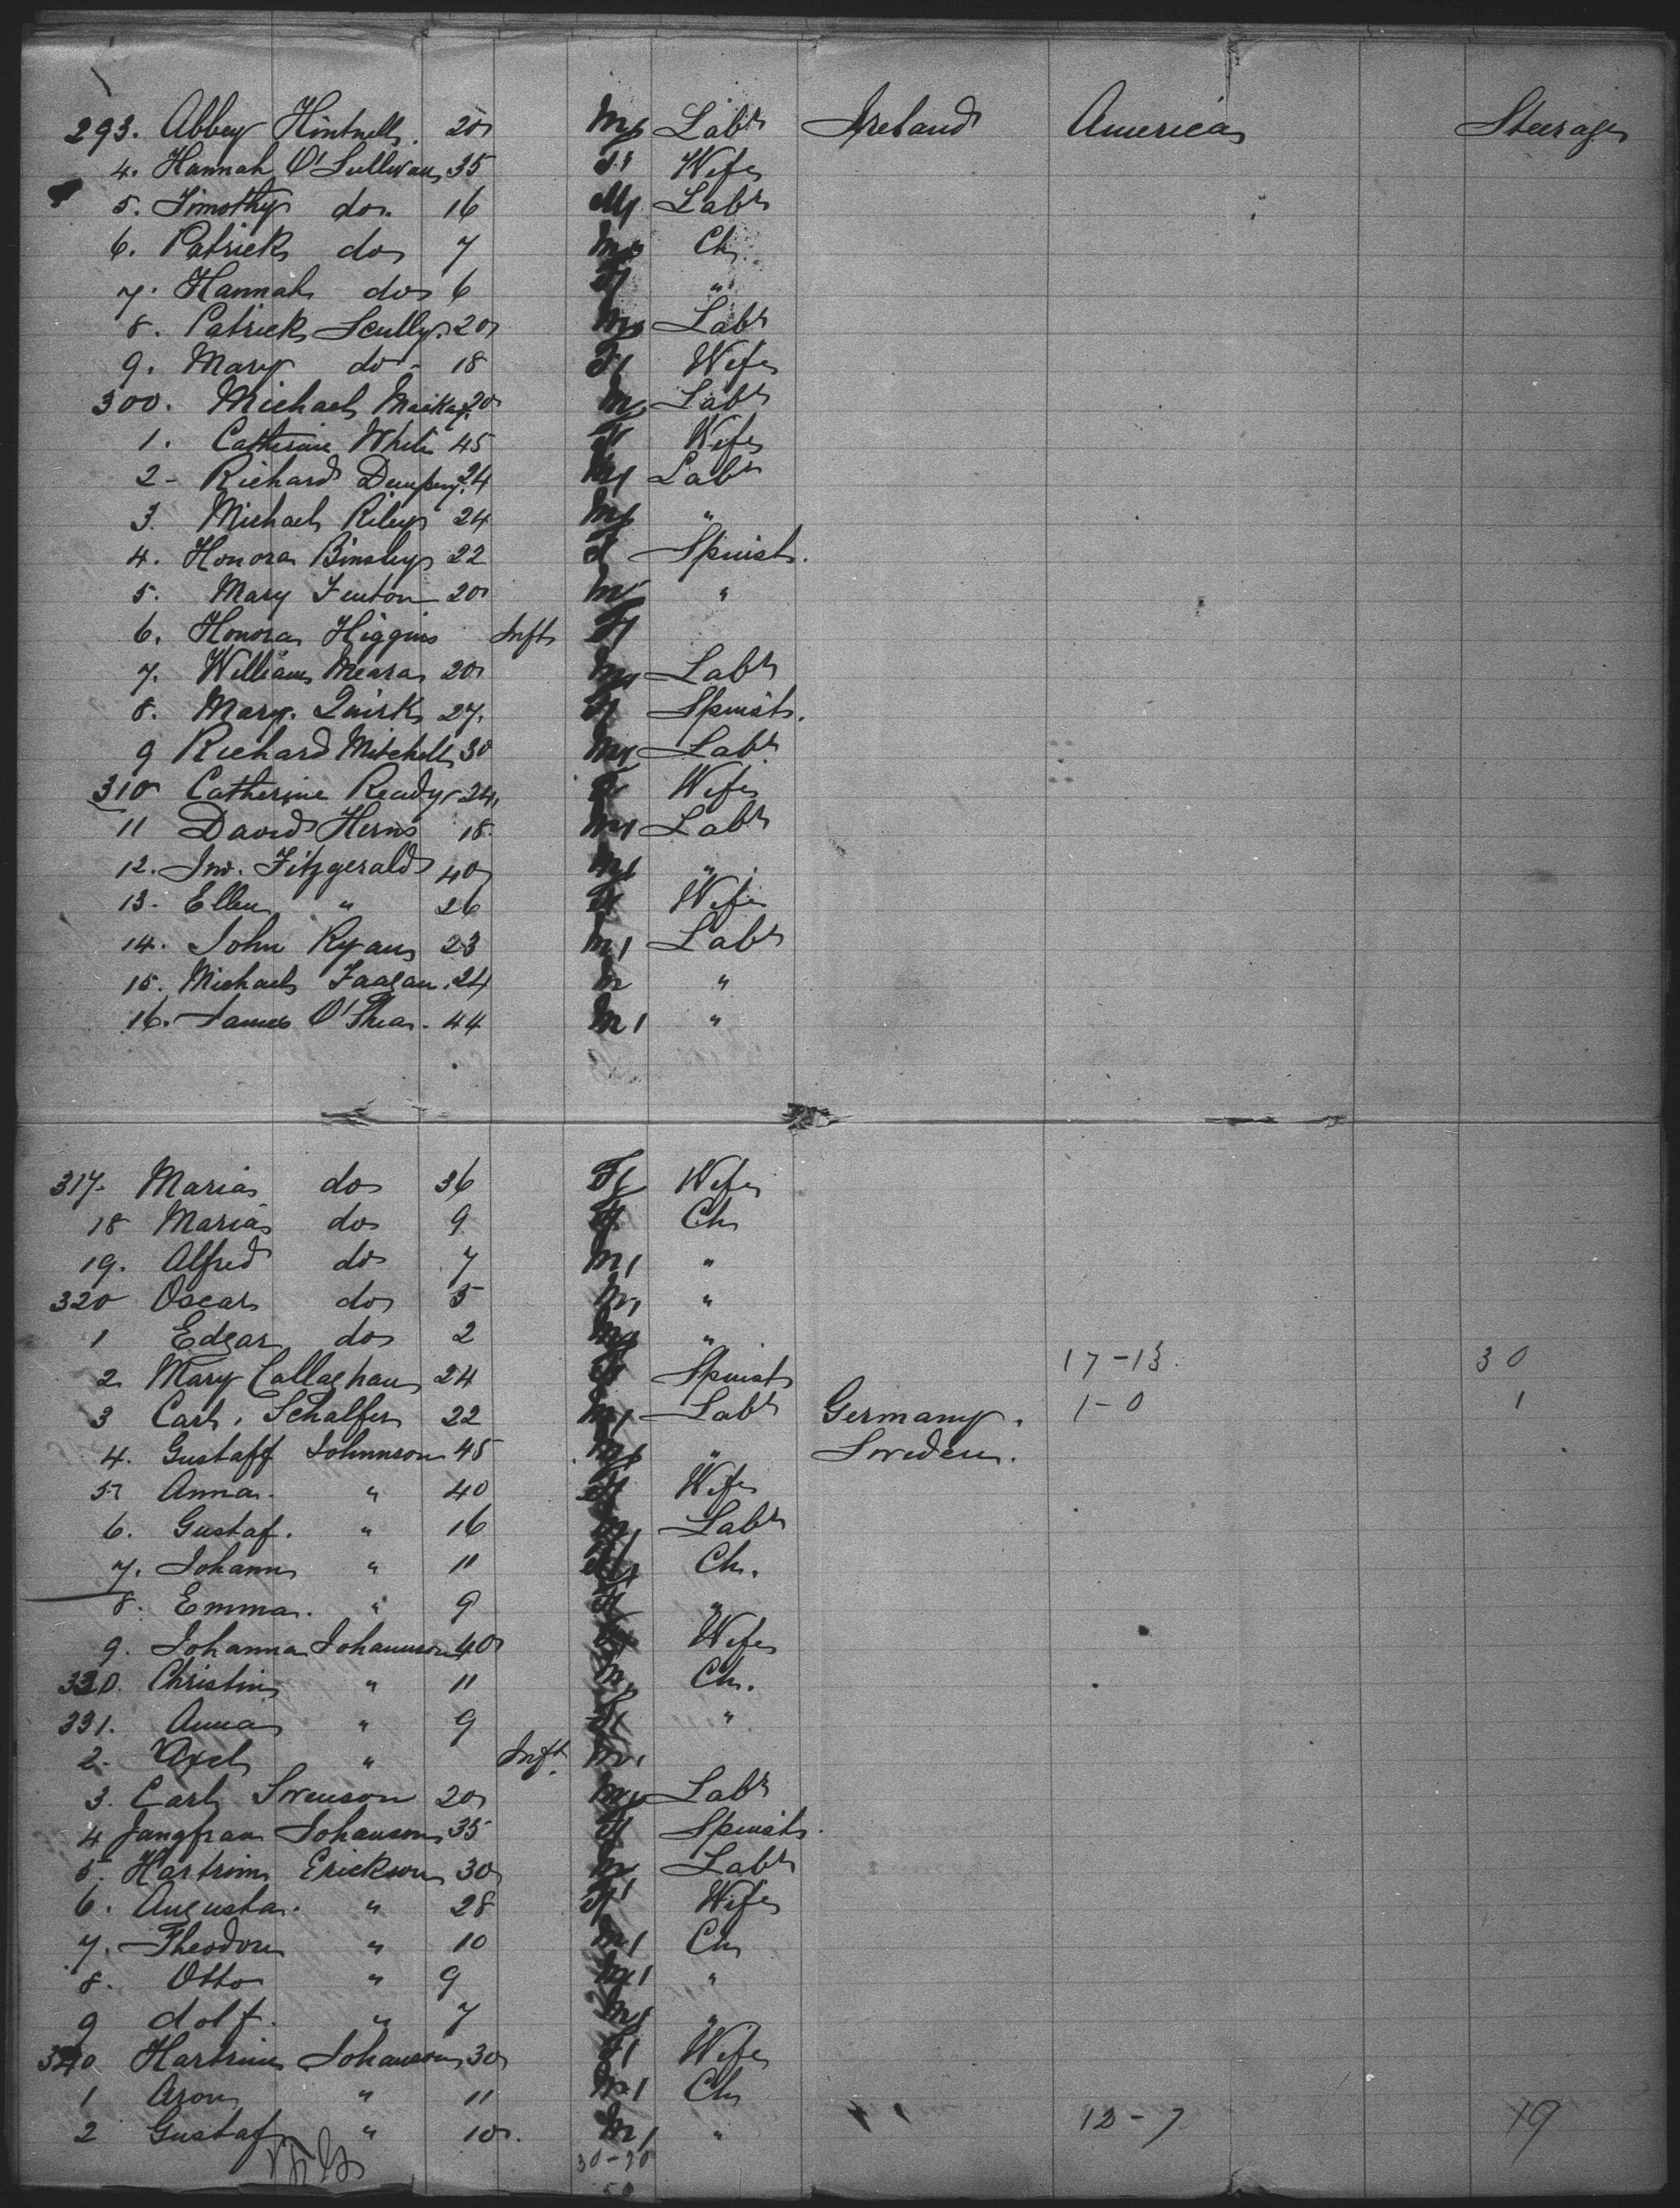 293. Abbey Hintnell. 20 M Labr Ireland America Steerage
4. Hannah O'Sullivan 35 F Wife
5. Timothy do. 16 M Labr
6. Patrick do 7 M Ch
7. Hannah do 6 F "
8. Patrick Scully. 20 M Labr
9. Mary do - 18 F Wife
300. Michael Mackay. 20 M Labr
1. Catherine White 45 F Wife
2 - Richard Dempsey. 24 M Labr
3. Michael Riley 24 M "
4. Honora Binsley 22 F Spinst.
5. Mary Fenton 20 M "
6. Honora Higgins Inft F
7. William Meara 20 M Labr
8. Mary. Quirk 27. F Spinst.
9 Richard Mitchell 30 M Labr
310 Catherine Ready 24 F Wife
11 David Herns 18 M Labr
12. Jno. Fitzgerald 40 M "
13. Ellen " 26 F Wife
14. John Ryan 23 M Labr
15. Michael Faagan. 24 M "
16. James O'Shea. 44 M "
317. Maria do 36 F Wife
18 Maria do 9 F Ch
19. Alfred do 7 M "
320 Oscar do 5 M "
1 Edgar do 2 M "
2 Mary Callaghan 24 F Spinst 17-13. 30
3 Carl. Schalfer 22 M Labr Germany. 1-0 1
4. Gustaff Johnnson 45 M " Sweden.
5 Anna. " 40 F Wife
6. Gustaf. " 16 M Labr
7. Johann " 11 Ch.
8. Emma. " 9 F "
9. Johanna Johannson 40 F Wife
330. Christin " 11 M Ch.
331. Anna " 9 F "
2. Axel " Inft. M
3. Carl Swenson 20 M Labr
4 Jungfrau Johanson 35 F Spinst.
5. Hartrim Erickson 30 M Labr
6. Augusta. " 28 F Wife
7. Theodore " 10 M Ch
8. Otto " 9 M "
9 dolf. " 7 M "
340 Hartrim Johanson 30 F Wife
1 Aron " 11 M Ch
2 Gustaf " 10. M " 12-7 19
30-20
50